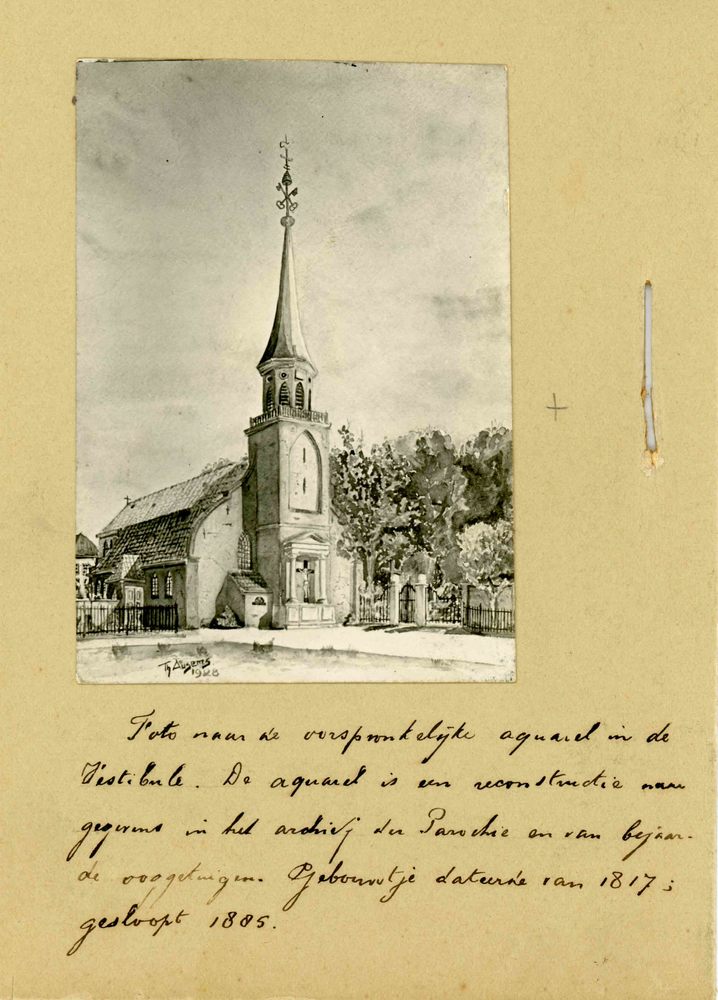 Th Ausems
1928
Foto naar de oorspronkelijke aquarel in de
Vestibule. De aquarel is een reconstructie naar
gegevens in het archief der Parochie en van bejaar-
de ooggetuigen. Gebouwtje dateerde van 1817;
gesloopt 1885.